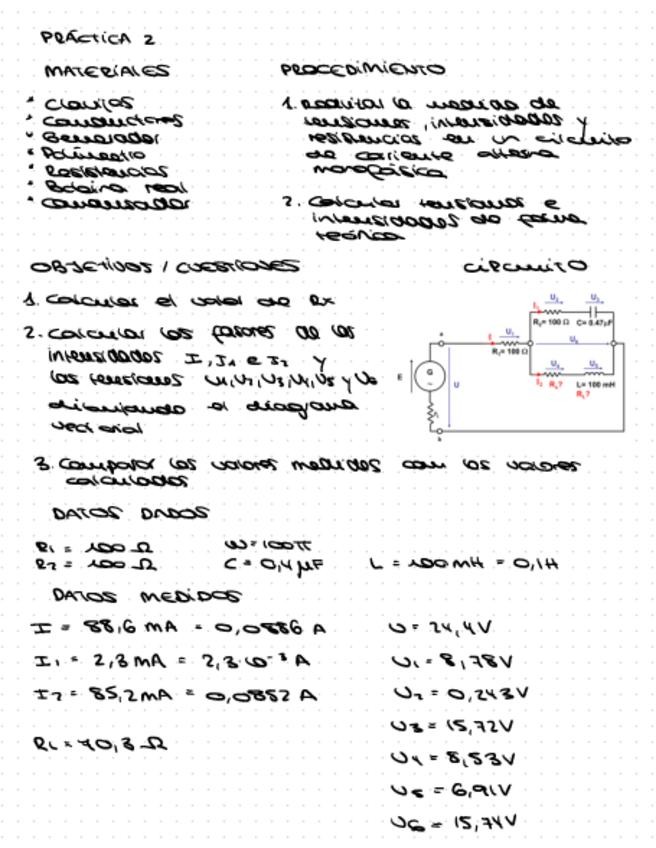 PRÁCTICA 2
MATERIALES
* Clavijas
* Conductores
* Generador
* Polímetro
* Resistencias
* Bobina real
* Condensador
PROCEDIMIENTO
1. Realizar la medida de
tensiones, intensidades y
resistencias en un circuito
de corriente alterna
monofásica
2. Calcular tensiones e
intensidades de forma
teórica
OBJETIVOS / CUESTIONES
1. Calcular el valor de Rx
2. Calcular los fasores de las
intensidades I, I1 e I2 y
las tensiones U1, U2, U3, U4, U5 y U6
dibujando el diagrama
vectorial
CIRCUITO
U2 U3
I1
R2= 100 Ω C= 0.47µF
a I U1 U6
R1= 100 Ω
E G ~ U
U4 U5
I2 Rx? L= 100 mH
RL?
b
3. Comparar los valores medidos con los valores
calculados
DATOS DADOS
R1 = 100 Ω W = 100π
R2 = 100 Ω C = 0,4 µF L = 100 mH = 0,1H
DATOS MEDIDOS
I = 88,6 mA = 0,0886 A U = 24,4V
I1 = 2,3 mA = 2,3·10⁻³ A U1 = 8,78V
I2 = 85,2 mA = 0,0852 A U2 = 0,243V
U3 = 15,72V
RL = 70,3 Ω
U4 = 8,53V
U5 = 6,91V
U6 = 15,74V